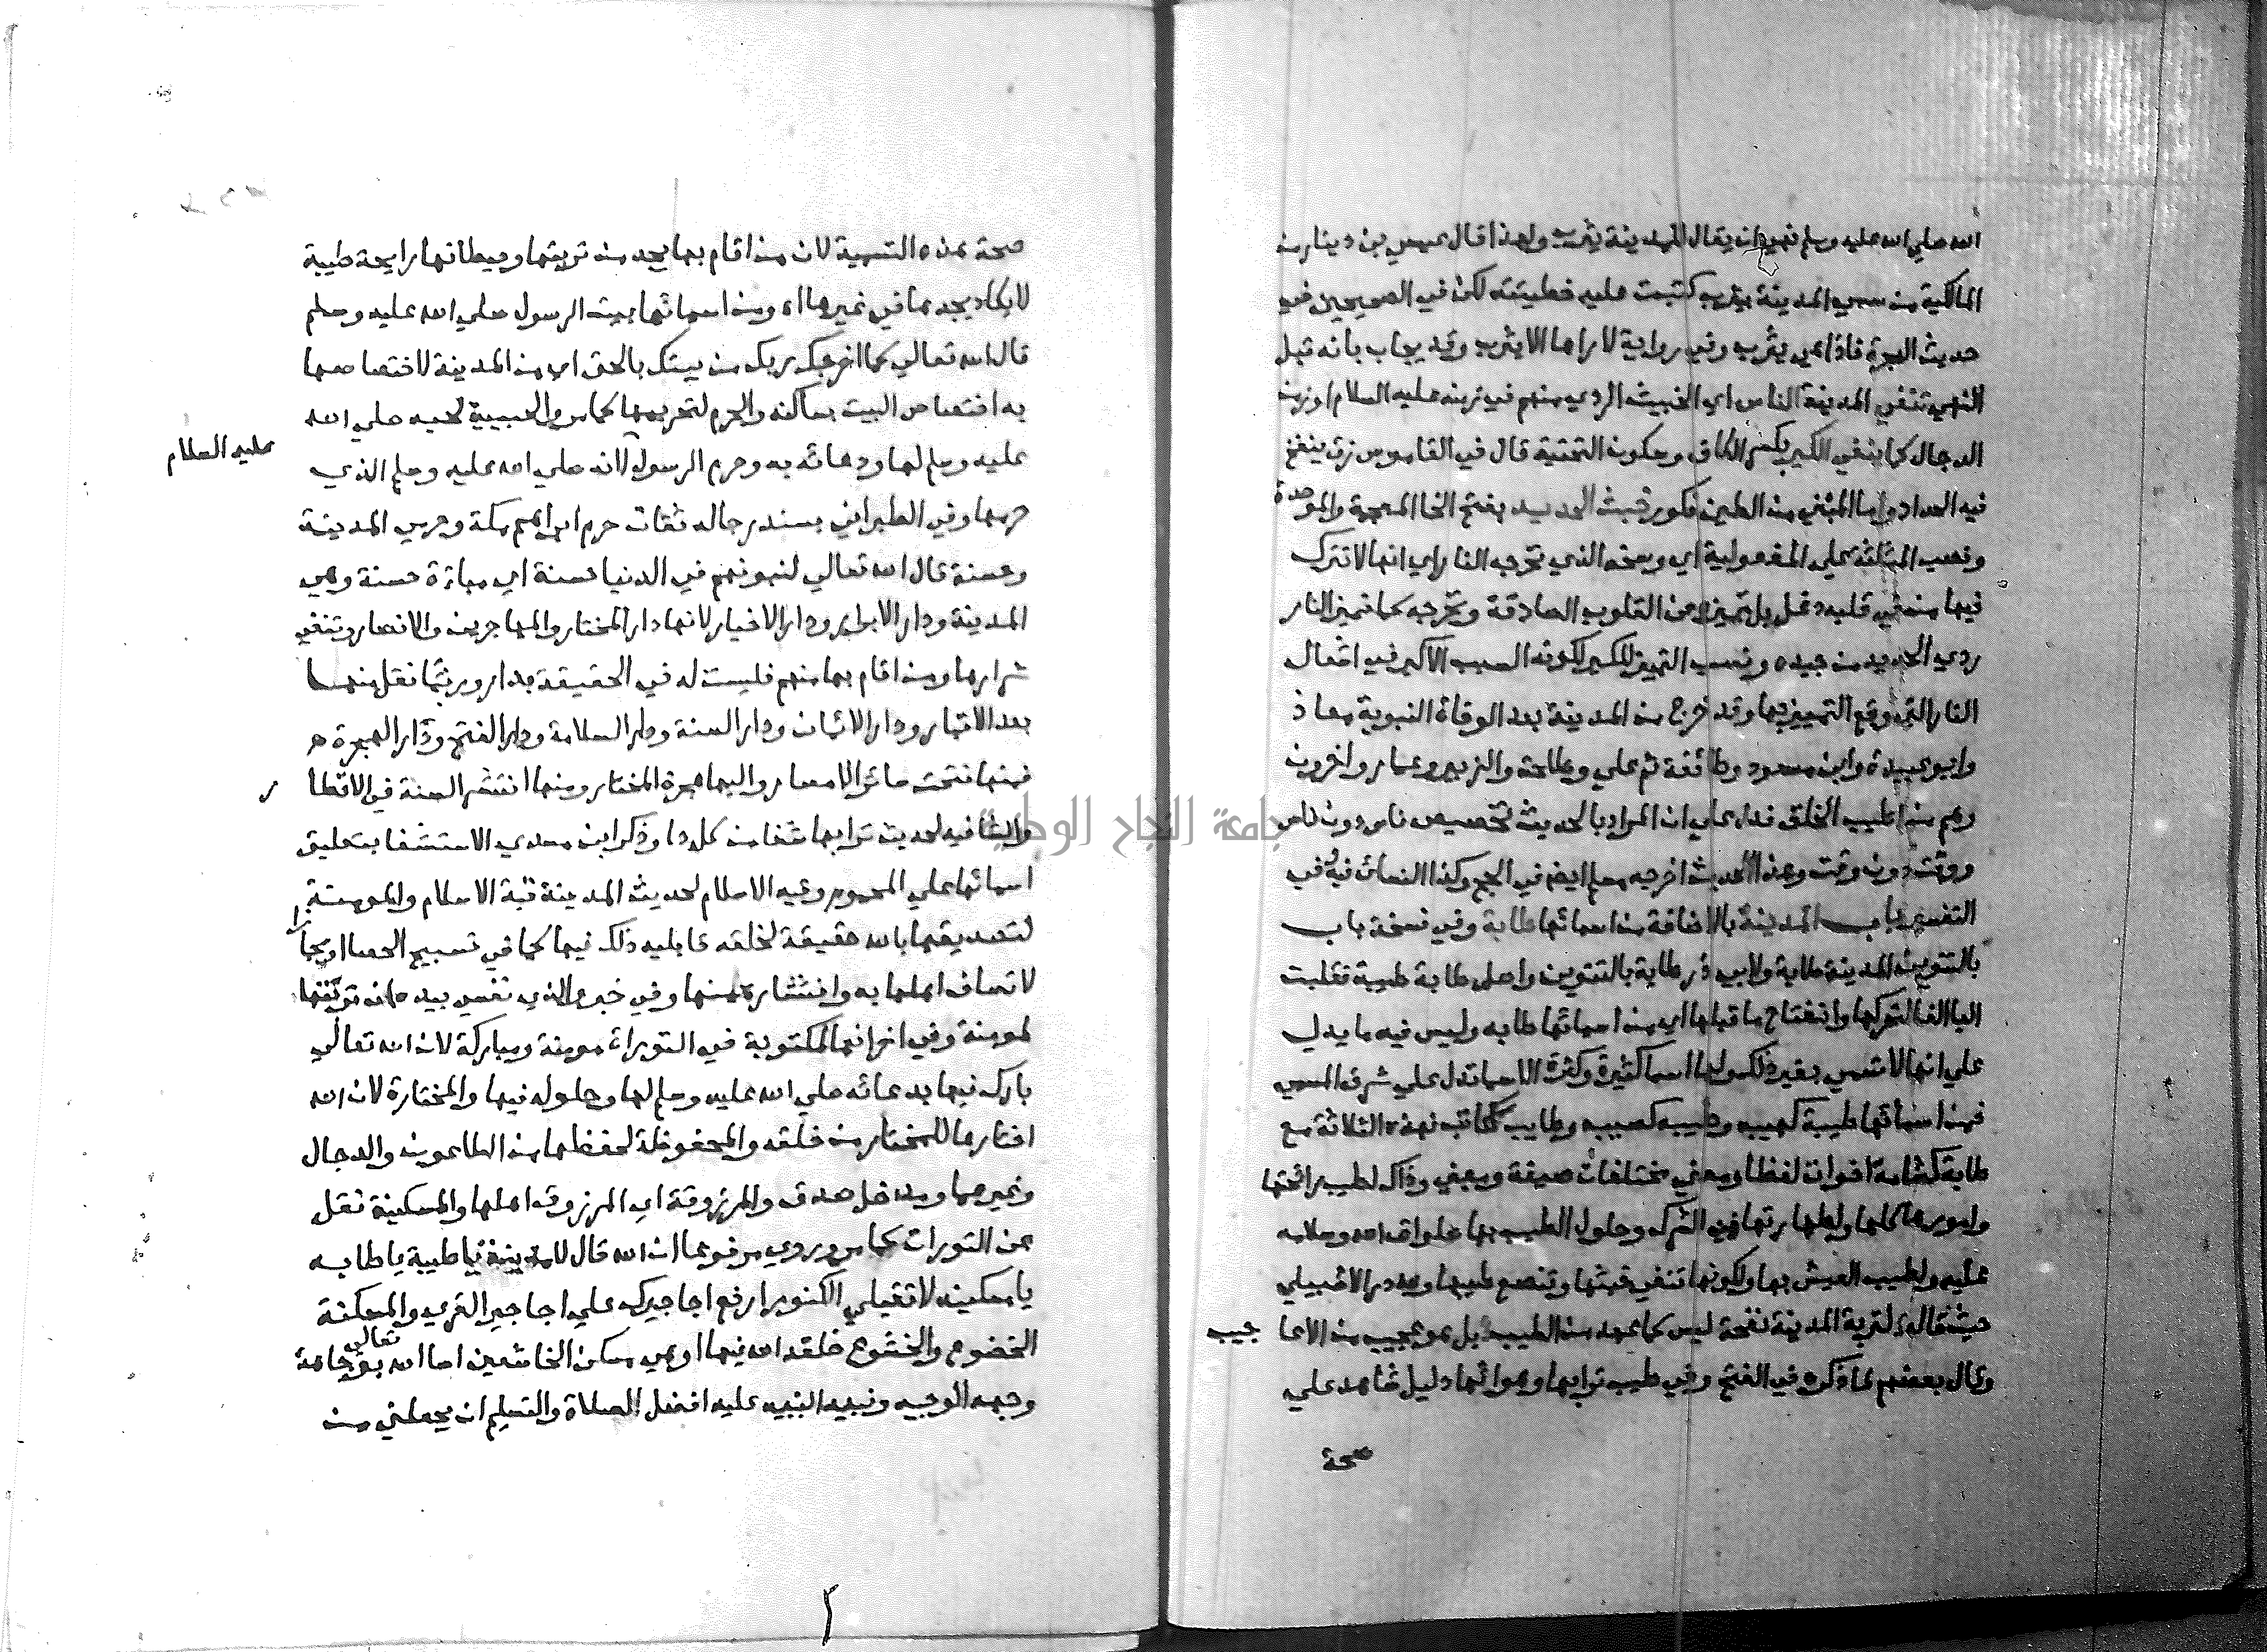 الله صلي الله عليه وسلم نهي ان يقال للمدينة يثرب ولهذا قال عيسي بن دينار من
المالكية من سمي المدينة يثرب كتبت عليه خطيئته لكن في الصحيحين في
حديث الهجرة فاذا هي يثرب وفي رواية لا اراها الا يثرب وقد يجاب بانه قبل
النهي تنفي المدينة الناس اي الخبيث الردي منهم في زمنه عليه السلام او زمن
الدجال كما ينفي الكير بكسر الكاف وسكون التحتية قال في القاموس زق ينفخ
فيه الحداد واما المبني من الطين فكور خبث الحديد بفتح الخا المعجمة والموحدة
ونصب المثلثة علي المفعولية اي وسخه الذي تخرجه النار اي انها لا تترك
فيها من في قلبه دغل بل تميزه عن القلوب الصادقة وتخرجه كما تميز النار
ردي الحديد من جيده ونسب التمييز للكير لكونه السبب الاكبر في اشعال
النار التي وقع التمييز بها وقد خرج من المدينة بعد الوفاة النبوية معاذ
وابو عبيدة وابن مسعود وطائفة ثم علي وطلحة والزبير وعمار واخرون
وهم من اطيب الخلق فدل علي ان المراد بالحديث تخصيص ناس دون ناس
ووقت دون وقت وهذا الحديث اخرجه مسلم ايضا في الحج وكذا النسائي فيه وفي
التفسير باب المدينة بالاضافة من اسمائها طابة وفي نسخة باب
بالتنوين المدينة طابة ولابي ذر طابة بالتنوين واصل طابة طيبة فقلبت
اليا الفا لتحركها وانفتاح ما قبلها اي من اسمائها طابه وليس فيه ما يدل
علي انها لا تسمي بغير ذلك ولها اسما كثيرة وكثرة الاسما تدل علي شرف المسمي
فمن اسمائها طيبة كهيبه وطيبه كصيبه وطايب ككاتب فهذه الثلاثة مع
طابة كشامة اخوات لفظا ومعني مختلفات صيغة ومبني وذلك لطيب رائحتها
وامورها كلها ولطهارتها من الشرك وحلول الطيب بها صلوات الله وسلامه
عليه ولطيب العيش بها ولكونها تنفي خبثها وتنصع طيبها ولله در الاشبيلي
حيث قال لتربة المدينة نفحة ليس كما عهد من الطيب بل هو عجيب من الاعا جيب
وقال بعضهم مما ذكره في الفتح وفي طيب ترابها وهوائها دليل شاهد علي
صحة
صحة هذه التسمية لان من اقام بها يجد من تربتها وحيطانها رايحة طيبة
لا يكاد يجدها في غيرها اه ومن اسمائها بيت الرسول صلي الله عليه وسلم
قال الله تعالي كما اخرجك ربك من بيتك بالحق اي من المدينة لاختصاصها
به اختصاص البيت بساكنه والحرم لتحريمها كما مر والحبيبة لحبه صلي الله
عليه وسلم لها ودعائه به وحرم الرسول لانه صلي الله عليه وسلم الذي
عليه السلام
حرمها وفي الطبراني بسند رجاله ثقات حرم ابراهيم مكة وحرمي المدينة
وحسنة قال الله تعالي لنبوئنهم في الدنيا حسنة اي مباءة حسنة وهي
المدينة ودار الابرار ودار الاخيار لانها دار المختار والمهاجرين والانصار وتنفي
شرارها ومن اقام بها منهم فليست له في الحقيقة بدار وربما نقل منها
بعد الاقبار ودار الايمان ودار السنة ودار السلامة ودار الفتح ودار الهجرة
فمنها فتحت سائر الامصار واليها هجرة المختار ومنها انتشر السنة في الاقطا ر
والشافيه لحديث ترابها شفا من كل دا وذكر ابن مسدي الاستشفا بتعليق
اسمائها علي المحموم وقبة الاسلام لحديث المدينة قبة الاسلام والمومنة
لتصديقها بالله حقيقة لخلقه قابليه ذلك فيها كما في تسبيح الحصا او مجازا
لاتصاف اهلها به وانتشاره منها وفي خبر والذي نفسي بيده ان تربتها
لمومنة وفي اخر انها لمكتوبة في التوراة مومنة ومباركة لان الله تعالي
بارك فيها بدعائه صلي الله عليه وسلم لها وحلوله فيها والمختارة لان الله
اختارها للمختار من خلقه والمحفوظة لحفظها من الطاعون والدجال
وغيرهما ومدخل صدق والمرزوقة اي المرزوق اهلها والمسكينة نقل
عن التورات كما مر وروي مرفوعا ان الله قال للمدينة يا طيبة يا طابه
يا مسكينه لا تقبلي الكنوز ارفع اجاجيرك علي اجاجير القري والمسكنة
الخضوع والخشوع خلقه الله فيها او هي مسكن الخاشعين اسا الله تعالي بوجاهة
وجهه الوجيه ونبيه النبيه عليه افضل الصلاة والتسليم ان يجعلني من
٢
جامعة النجاح الوطنية